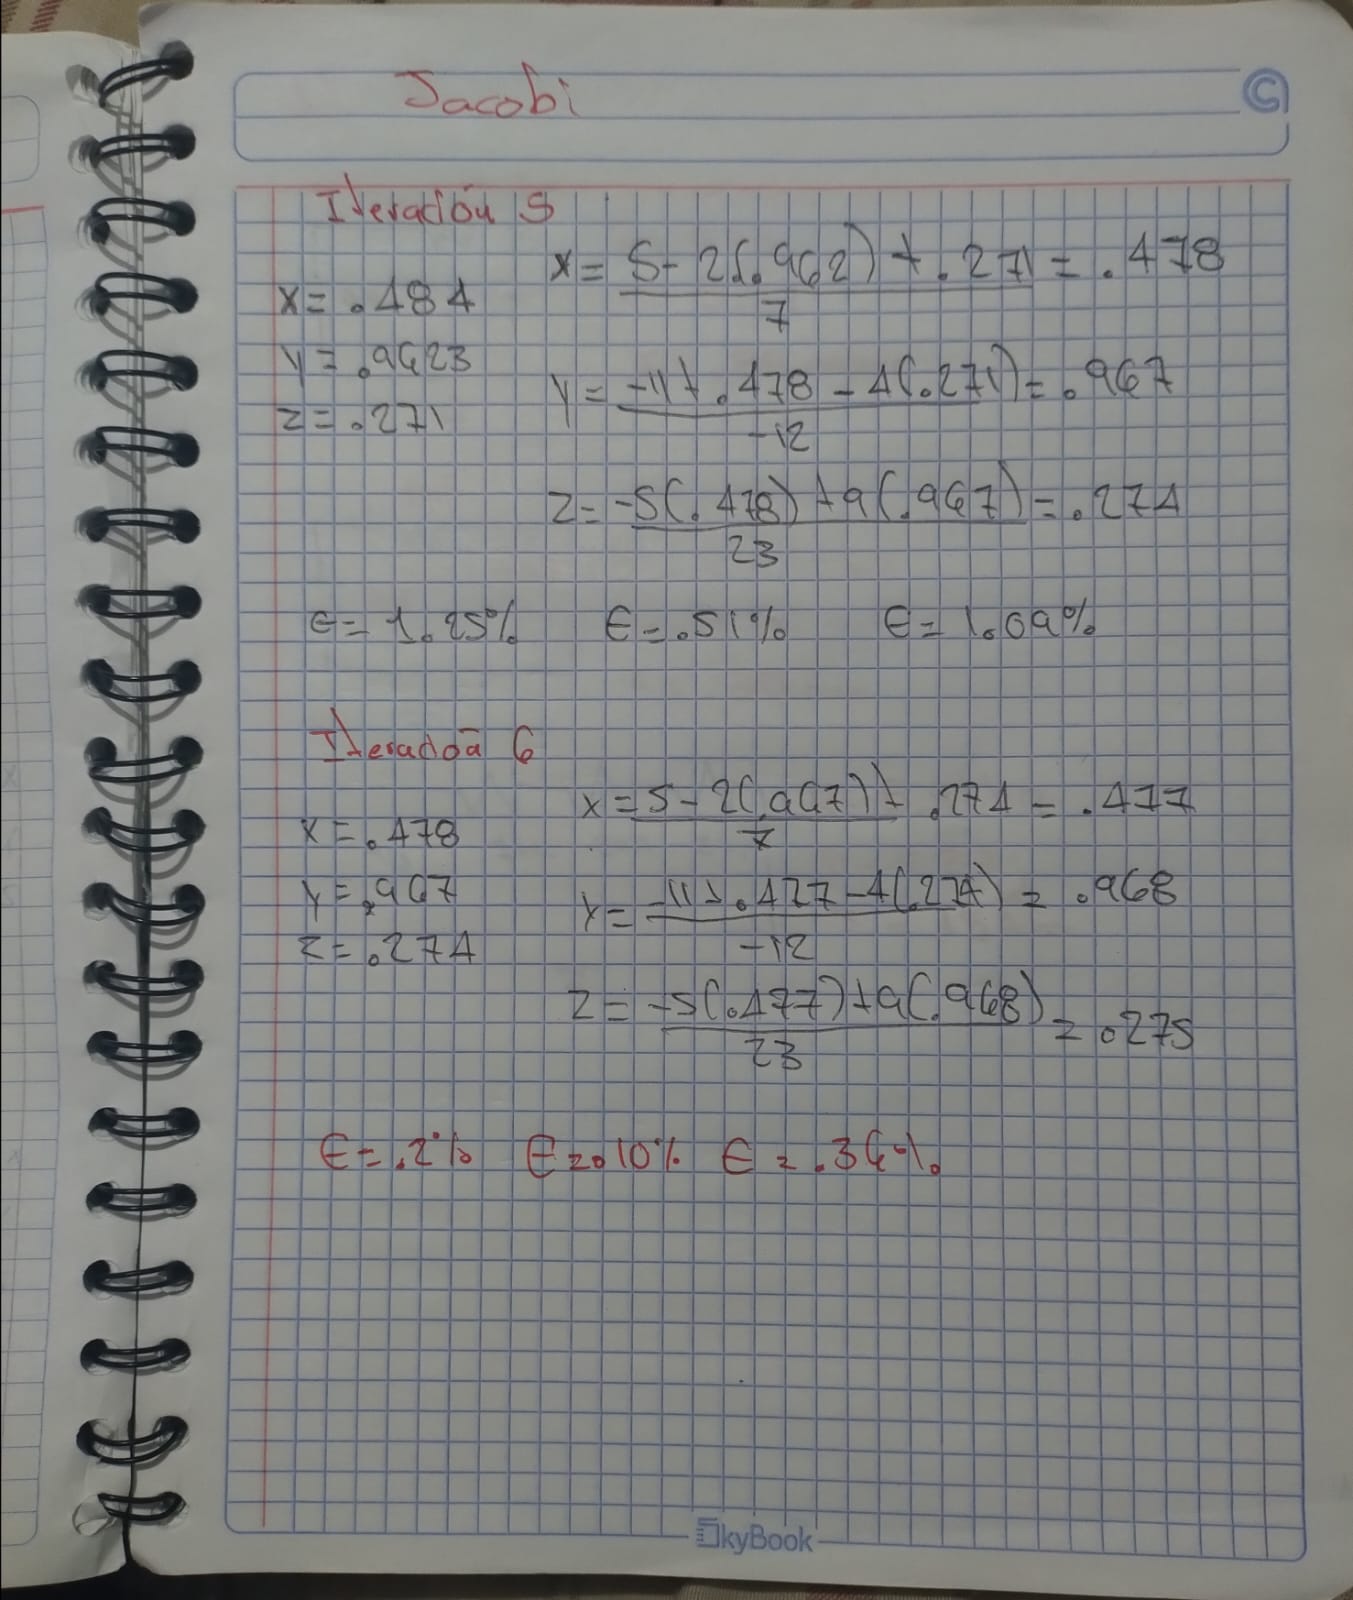 Jacobi
Iteración 5
x = .484
y = .9623
z = .271
x = 5 - 2(.962) + .271 = .478
7
y = -11 + .478 - 4(.271) = .967
-12
z = -5(.478) + 9(.967) = .274
23
E = 1.25% E = .51% E = 1.09%
Iteración 6
x = .478
y = .967
z = .274
x = 5 - 2(.967) + .274 = .477
7
y = -11 + .477 - 4(.274) = .968
-12
z = -5(.477) + 9(.968) = .275
23
E = .2% E = .10% E = .36%
SkyBook